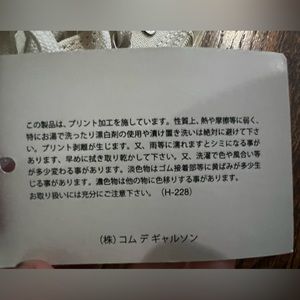 この製品は、プリント加工を施しています。性質上、熱や摩擦等に弱く、
特にお湯で洗ったり漂白剤の使用や漬け置き洗いは絶対に避けて下さ
い。プリント剥離が生じます。又、雨等に濡れますとシミになる事が
あります、早めに拭き取り乾かして下さい。又、洗濯で色や風合い等
が多少変わる事があります。淡色物はゴム接着部等に黄ばみが多少生
じる事があります。濃色物は他の物に色移りする事があります。
お取り扱いには充分にご注意下さい。（H-228）
（株）コム デ ギャルソン